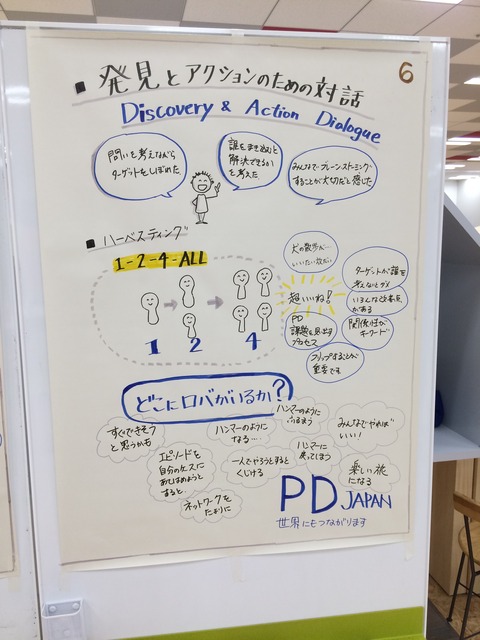 6
■ 発見とアクションのための対話
Discovery & Action Dialogue
問いを考えながら
ターゲットをしぼめた
誰をまき込むと
解決できるか
を考えた
みんなでブレーンストーミング
することが大切だと感じた
■ ハーベスティング
1-2-4-ALL
1 2 4
犬の散歩が…
いいたい放だい
超いいね!
ターゲットが誰を
考えないとダメ
いろんな改善点
がある
PD
課題を見出す
プロセス
関係性が
キーワード
フリップすることが
重要です
どこにロバがいるか?
すぐできそう
と思うかも
ハンマーのように
なる…
ハンマーのように
ふるまう
みんなでやれば
いい!
エピソードを
自分のケースに
あてはめようと
すると…
一人でやろうとすると
くじける
ハンマーに
戻ってしまう
楽しい旅
になる
ネットワークを
たよりに
PD JAPAN
世界にもつながります